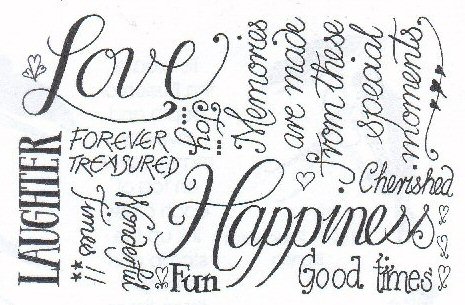 Love
...Joy...
Memories
are made
from these
special
moments
LAUGHTER
FOREVER
TREASURED
Wonderful
Times!!
Happiness
Cherished
Fun
Good times